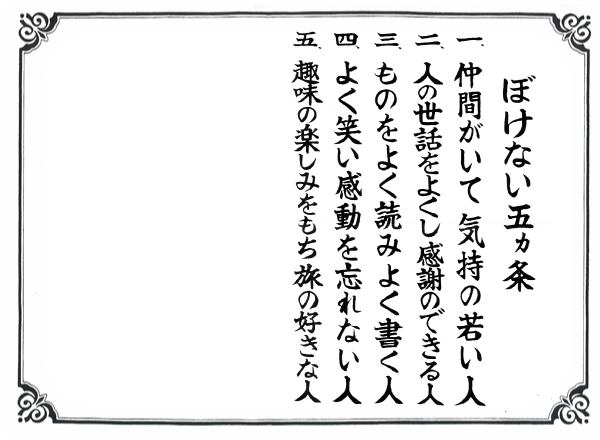 ぼけない五ヵ条
一、仲間がいて気持の若い人
二、人の世話をよくし感謝のできる人
三、ものをよく読みよく書く人
四、よく笑い感動を忘れない人
五、趣味の楽しみをもち旅の好きな人